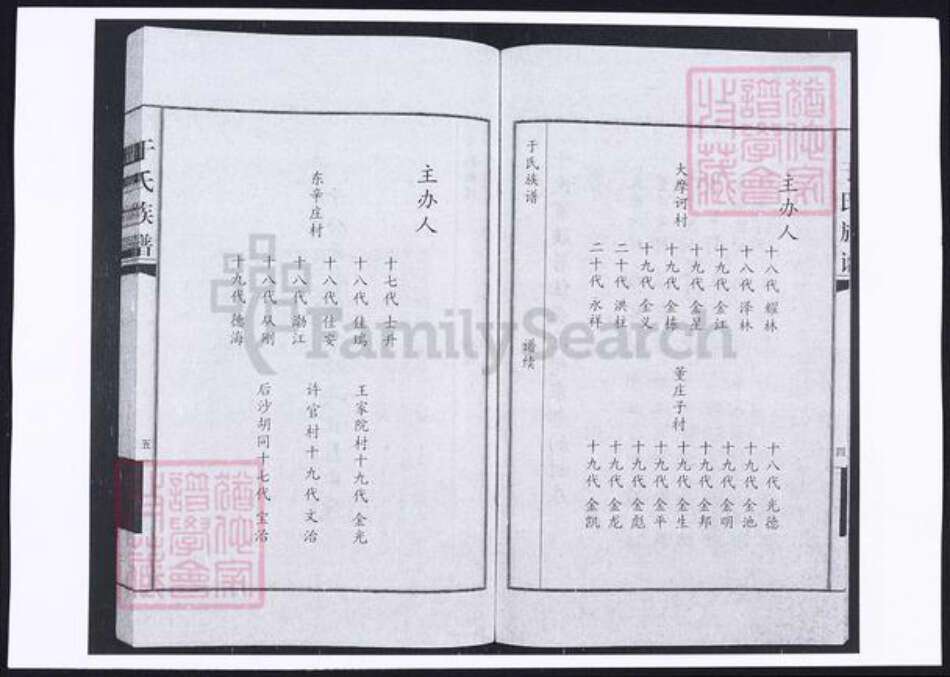 于氏族谱
四
主办人
大摩诃村
十八代 耀林
十八代 泽林
十九代 金江
十九代 金星
十九代 金栋
十九代 金义
二十代 洪柱
二十代 永祥
董庄子村
十八代 光德
十九代 金池
十九代 金明
十九代 金邦
十九代 金生
十九代 金平
十九代 金彪
十九代 金龙
十九代 金凯
于氏族谱
谱续
主办人
东辛庄村
十七代 士升
十八代 佳瑞
十八代 佳安
十八代 渤江
十八代 从刚
十九代 德海
王家院村十九代 金光
许官村十九代 文治
后沙胡同十七代 宝治
于氏族谱
五
FamilySearch